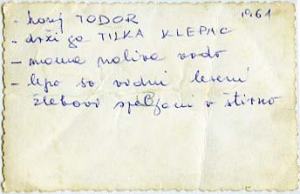 - konj TODOR 1961
- drži ga TILKA KLEPAC
- mama naliva vodo
- lepo so vodni leseni
žlebovi speljani v štirno